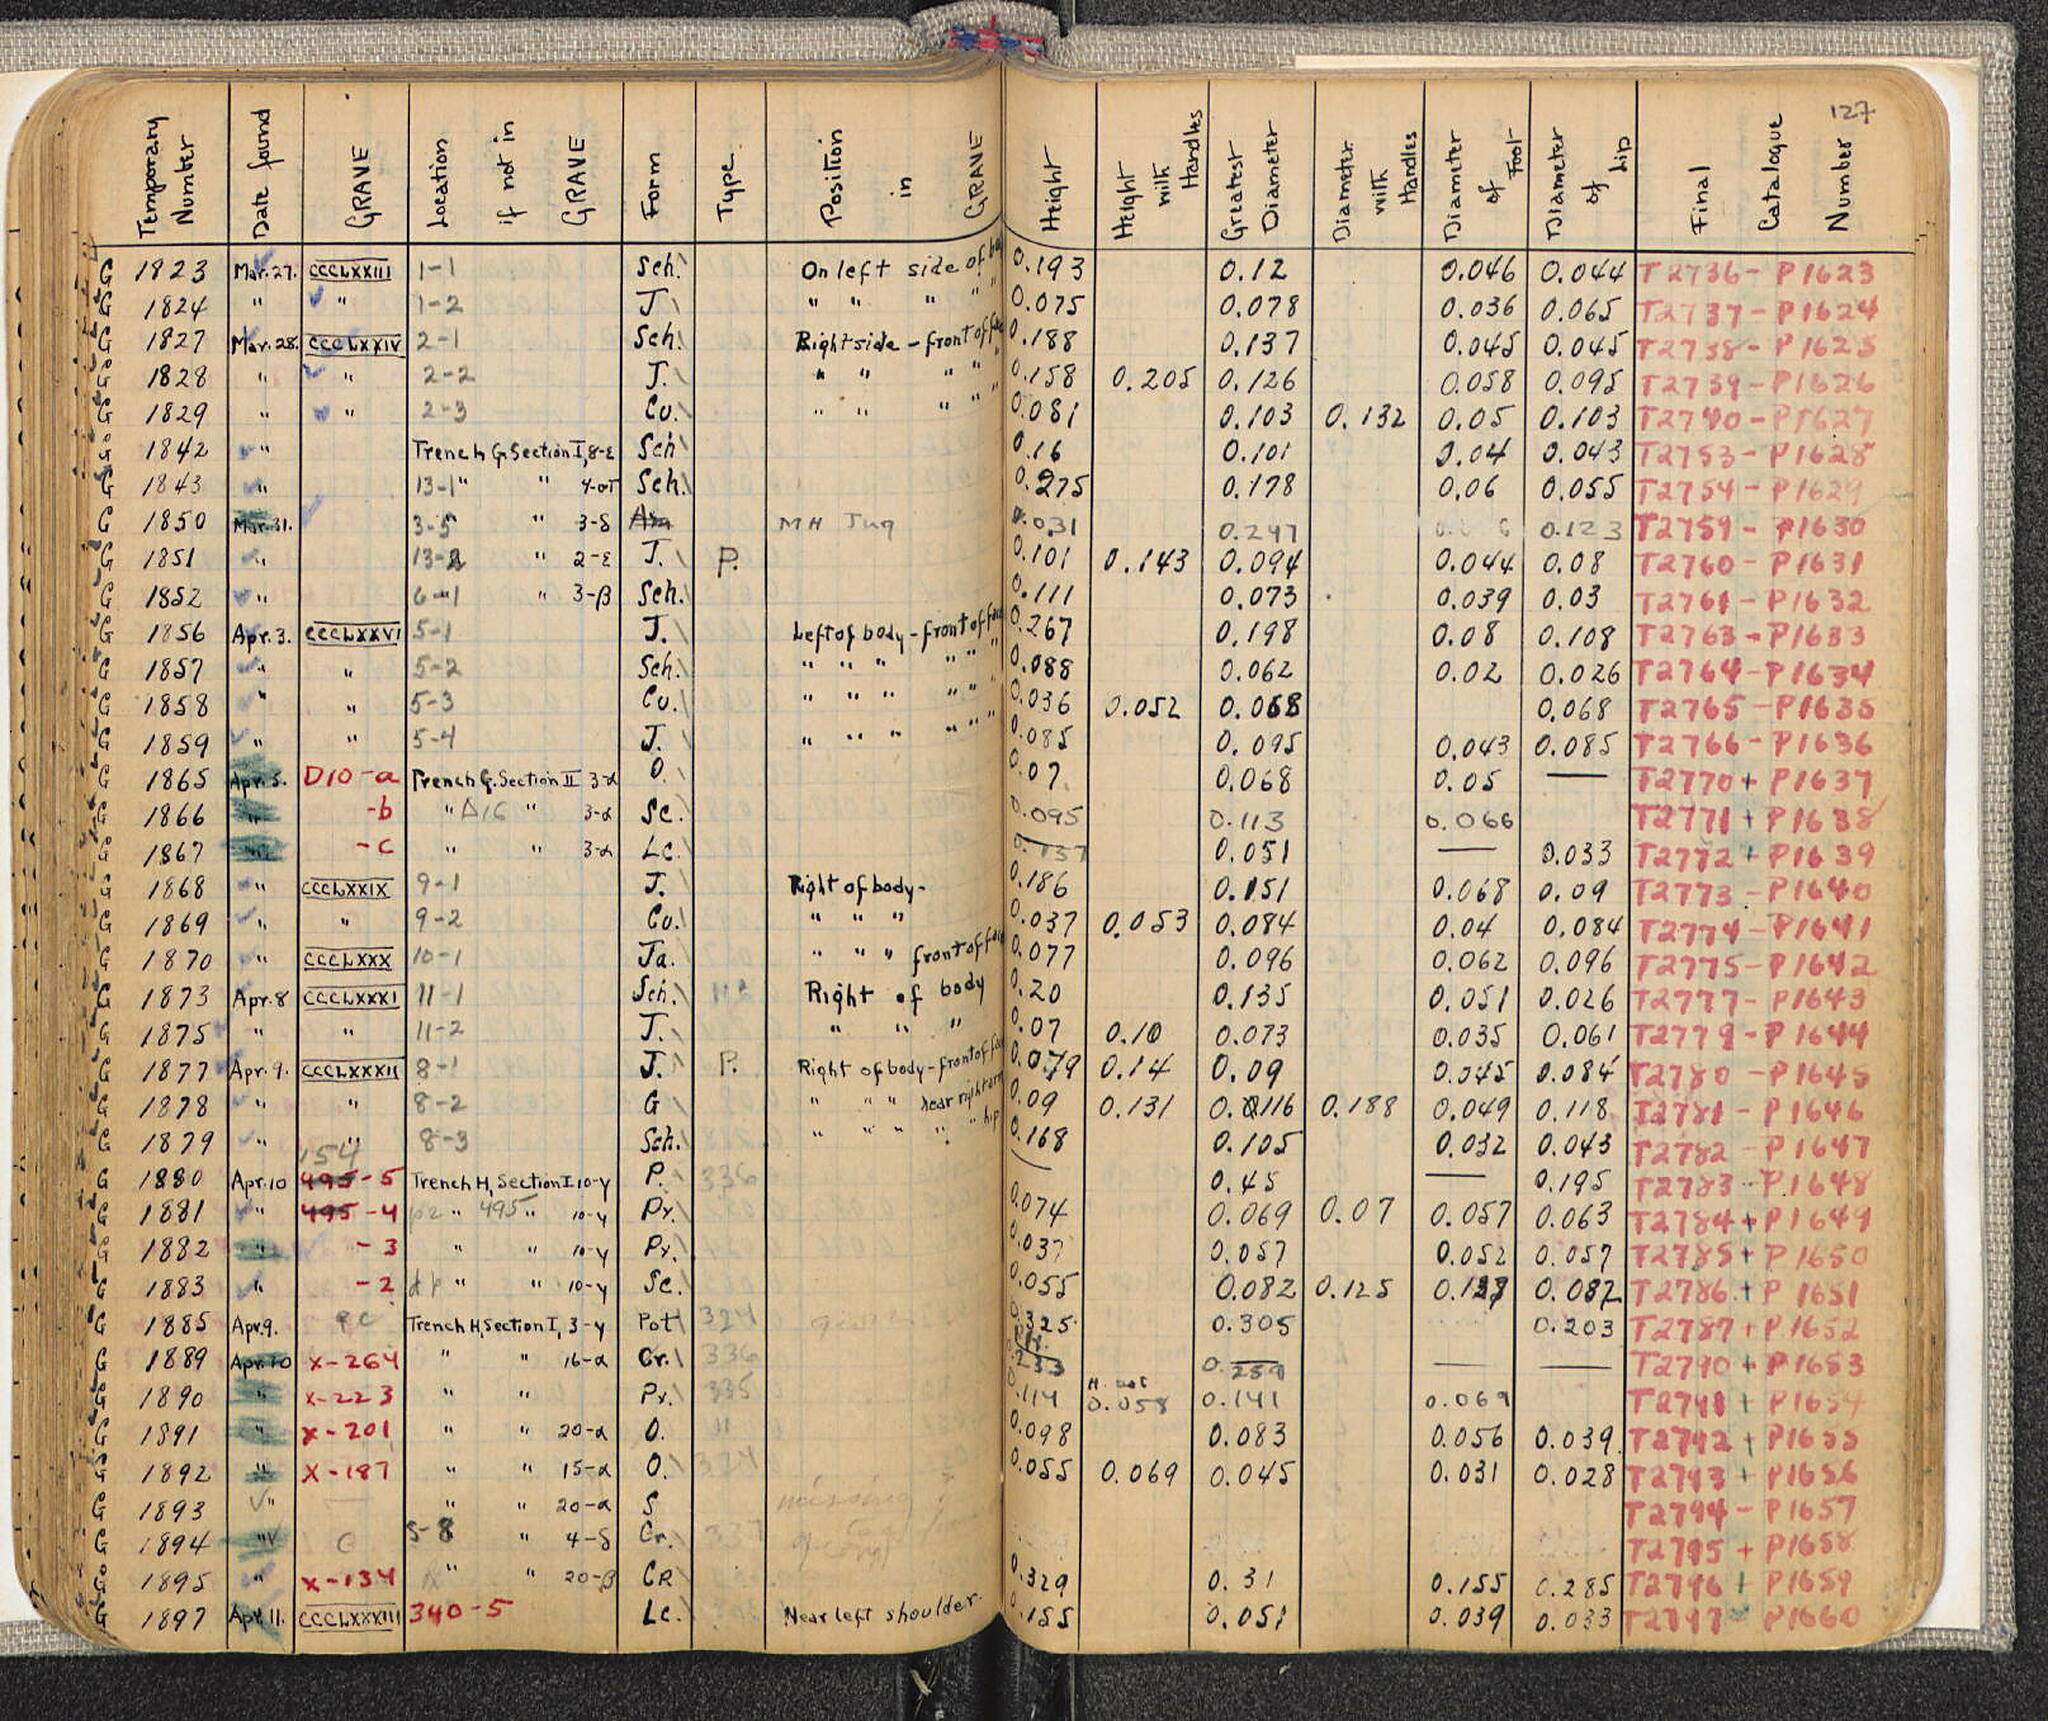 127
Temporary Number Date found GRAVE Location if not in GRAVE Form Type Position in GRAVE Height Height with Handles Greatest Diameter Diameter with Handles Diameter of Foot Diameter of Lip Final Catalogue Number
G 1823 Mar. 27. CCCLXXIII 1-1 Sch. On left side of 0.193 0.12 0.046 0.044 T2736 - P1623
G 1824 " " 1-2 J. " " " " " 0.075 0.078 0.036 0.065 T2737 - P1624
G 1827 Mar. 28. CCCLXXIV 2-1 Sch. Right side - front of 0.188 0.137 0.045 0.045 T2738 - P1625
G 1828 " " 2-2 J. " " " " " 0.158 0.205 0.126 0.058 0.095 T2739 - P1626
G 1829 " " 2-3 Cu. " " " " " 0.081 0.103 0.132 0.05 0.103 T2740 - P1627
G 1842 " Trench G, Section I, 8-ε Sch 0.16 0.101 0.04 0.043 T2753 - P1628
G 1843 " 13-1 " " Sch. 0.275 0.178 0.06 0.055 T2754 - P1629
G 1850 Mar. 31. 3-5 " 3-δ MH Jug 0.031 0.247 0.123 T2759 - P1630
G 1851 " 13-2 " 2-ε J. P. 0.101 0.143 0.094 0.044 0.08 T2760 - P1631
G 1852 " 6-1 " 3-β Sch. 0.111 0.073 0.039 0.03 T2761 - P1632
G 1856 Apr. 3. CCCLXXVI 5-1 J. Left of body - front of 0.267 0.198 0.08 0.108 T2763 - P1633
G 1857 " " 5-2 Sch. " " " " " " 0.088 0.062 0.02 0.026 T2764 - P1634
G 1858 " " 5-3 Cu. " " " " " " 0.036 0.052 0.068 0.068 T2765 - P1635
G 1859 " " 5-4 J. " " " " " " 0.085 0.095 0.043 0.085 T2766 - P1636
G 1865 Apr. 5. D10-a Trench G, Section II 3-α O. 0.07 0.068 0.05 — T2770 + P1637
G 1866 " -b " Δ16 " 3-α Sc. 0.095 0.113 0.066 T2771 + P1638
G 1867 " -c " " 3-α Lc. 0.137 0.051 — 0.033 T2772 + P1639
G 1868 " CCCLXXIX 9-1 J. Right of body - 0.186 0.151 0.068 0.09 T2773 - P1640
G 1869 " " 9-2 Cu. " " " 0.037 0.053 0.084 0.04 0.084 T2774 - P1641
G 1870 " CCCLXXX 10-1 Ja. " " " front of 0.077 0.096 0.062 0.096 T2775 - P1642
G 1873 Apr. 8 CCCLXXXI 11-1 Sch. Right of body 0.20 0.135 0.051 0.026 T2777 - P1643
G 1875 " " 11-2 J. " " " 0.07 0.10 0.073 0.035 0.061 T2779 - P1644
G 1877 Apr. 9. CCCLXXXII 8-1 J. P. Right of body - front of 0.079 0.14 0.09 0.045 0.084 T2780 - P1645
G 1878 " " 8-2 G " " " near right arm 0.09 0.131 0.116 0.188 0.049 0.118 T2781 - P1646
G 1879 " " 8-3 Sch. " " " " " hip 0.168 0.105 0.032 0.043 T2782 - P1647
154
G 1880 Apr. 10 495-5 Trench H, Section I 10-γ P. 336 — 0.45 — 0.195 T2783 - P1648
G 1881 " 495-4 " 495 " 10-γ Px. 0.074 0.069 0.07 0.057 0.063 T2784 + P1649
G 1882 " -3 " " 10-γ Px. 0.037 0.057 0.052 0.057 T2785 + P1650
G 1883 " -2 " " 10-γ Sc. 0.055 0.082 0.125 0.082 T2786 + P1651
G 1885 Apr. 9. Trench H, Section I, 3-γ Pot 324 0.325 0.305 0.203 T2787 + P1652
G 1889 Apr. 10 X-264 " " 16-α Cr. 336 0.233 0.259 — — T2790 + P1653
G 1890 " X-223 " " Px. 335 .114 0.058 0.141 0.069 T2791 + P1654
G 1891 " X-201 " " 20-α O. 11 0.098 0.083 0.056 0.039 T2792 + P1655
G 1892 " X-187 " " 15-α O. 324 0.055 0.069 0.045 0.031 0.028 T2793 + P1656
G 1893 " — " " 20-α S missing ? T2794 - P1657
G 1894 " C S-8 " 4-δ Cr. 337 T2795 + P1658
G 1895 " X-134 " " 20-β CR 0.329 0.31 0.155 0.285 T2796 + P1659
G 1897 Apr. 11. CCCLXXXIII 340-5 Lc. Near left shoulder. 0.155 0.051 0.039 0.033 T2797 - P1660